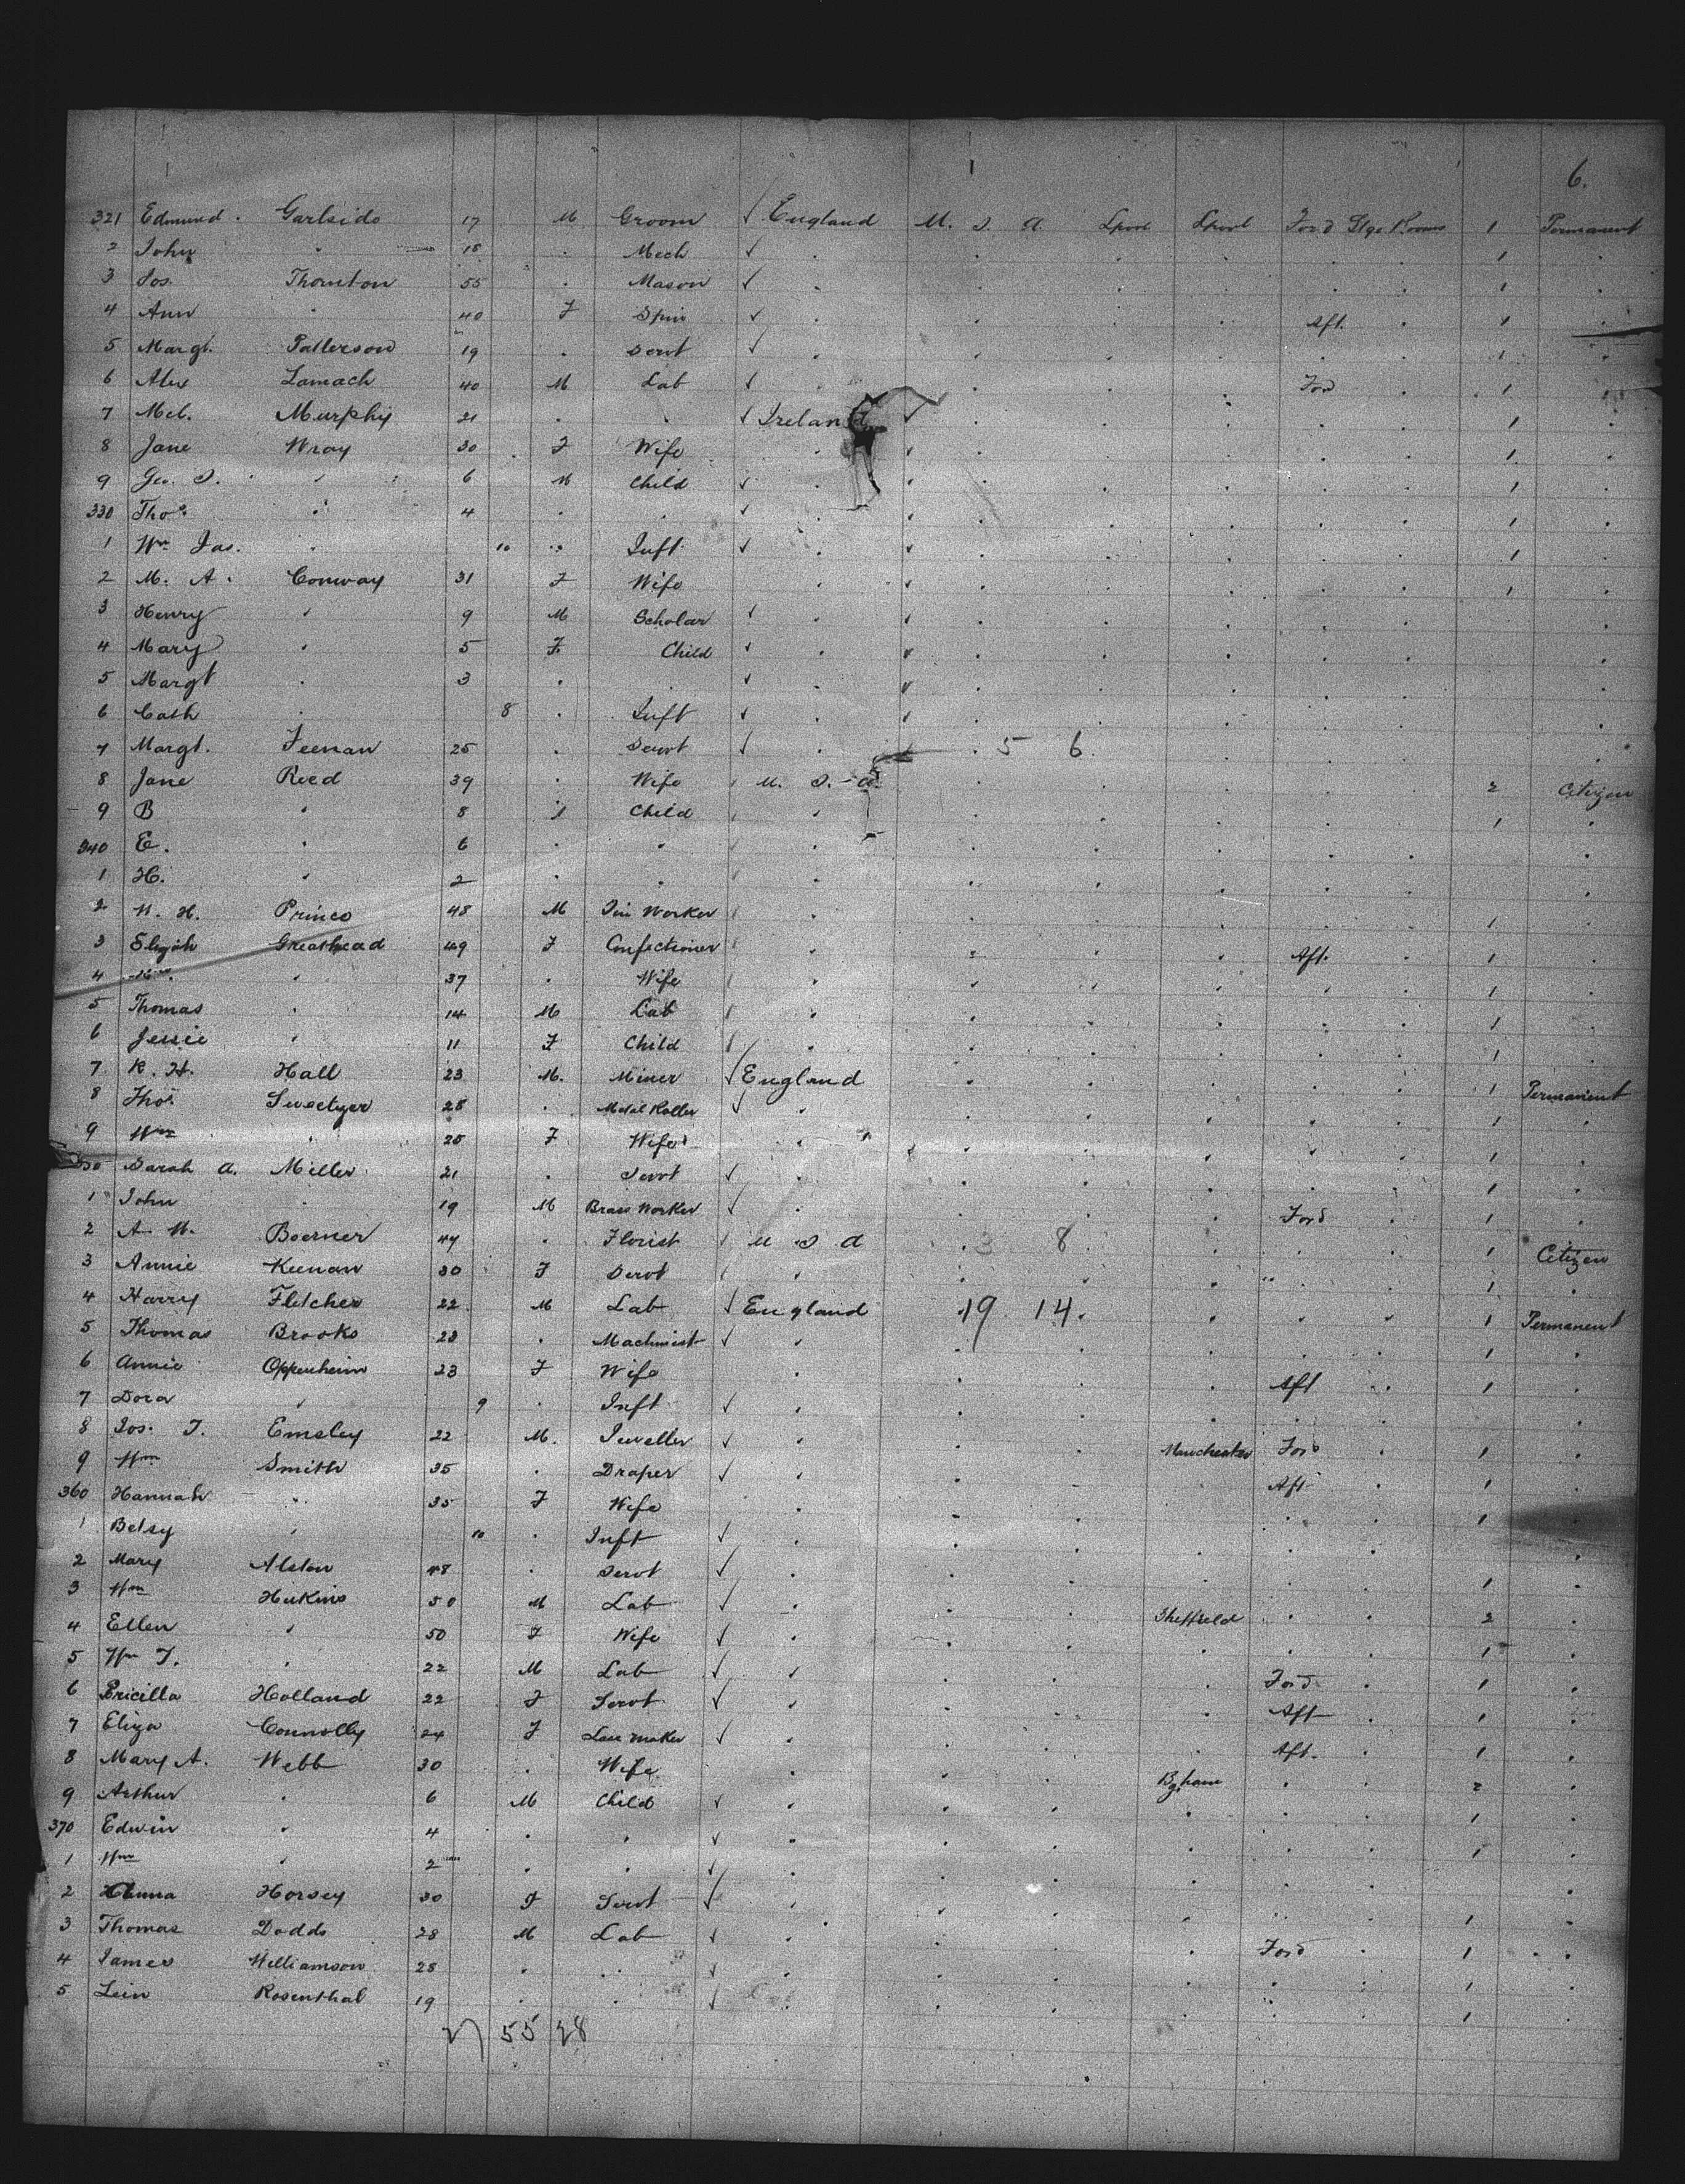 6.
321 Edmund . Garlside 17 M Groom √ England U. S. A. Lpool Lpool For'd Stge Rooms 1 Permanent
2 John " 18 . Mech √ . . . . . . 1 .
3 Jos. Thornton 55 . Mason √ . . . . . . 1 .
4 Ann " 40 F Spin √ . . . . Aft. . 1 .
5 Margt. Patterson 19 . Servt √ . . . . . . 1 .
6 Alex Lamach 40 M Lab √ . . . . For'd . 1 .
7 Mcl. Murphy 21 . . √ Ireland √ . . . . . 1 .
8 Jane Wray 30 F Wife . √ . . . . . 1 .
9 Geo. S. " 6 M Child √ . √ . . . . . 1 .
330 Thos. " 4 . . √ . √ . . . . . 1 .
1 Wm Jas. " 10 . Inft √ . √ . . . . . 1 .
2 M. A. Conway 31 F Wife . √ . . . . . 1 .
3 Henry " 9 M Scholar √ . √ . . . . . .
4 Mary " 5 F. Child √ . √ . . . . . .
5 Margt " 3 . . √ . √ . . . . . .
6 Cath " 8 . Inft √ . √ . . . . . .
7 Margt. Feenan 25 . Servt √ . . 5 6 . . . . .
8 Jane Reed 39 . Wife U. S. A. . . . . . 2 Citizen
9 B " 8 Child . . . . . . 1 .
340 E. " 6 . . . . . . . . .
1 H. " 2 . . . . . . . . .
2 W. H. Prince 48 M Tin Worker . . . . . . 1 .
3 Elijah Greathead 49 F Confectioner . . . . Aft. . 1 .
4 " 37 . Wife . . . . . . 1 .
5 Thomas " 14 M Lab . . . . . . 1 .
6 Jessie " 11 F Child . . . . . . 1 .
7 R. H. Hall 23 M. Miner √ England . . . . . 1 Permanent
8 Thos. Sweetyer 28 . Metal Roller √ . . . . . . 1 .
9 Wm " 25 F Wife . . . . . . 1 .
350 Sarah A. Miller 21 . Servt √ . . . . . . 1 .
1 John " 19 M Brass Worker √ . . . . For'd . 1 .
2 A. W. Boerner 44 . Florist U S A . 3 8 . . . 1 Citizen
3 Annie Keenan 30 F Servt . . . . " . 1 .
4 Harry Fletcher 22 M Lab √ England 19 14. . . . 1 Permanent
5 Thomas Brooks 23 . Machinist √ . . . . . . 1 .
6 Annie Oppenheim 23 F Wife . . . . Aft . 1 .
7 Dora " 9 . Inft √ . . . . . . .
8 Jos. T. Emsley 22 M. Jeweller √ . . . Manchester For'd . 1 .
9 Wm Smith 35 . Draper √ . . . . Aft . 1 .
360 Hannah " 35 F Wife . . . . . . 1 .
1 Betsy " 10 . Inft √ . . . . . . .
2 Mary Alston 48 . Servt √ . . . . . . 1 .
3 Wm Hukins 50 M Lab √ . . . Sheffield . . 2 .
4 Ellen " 50 F Wife √ . . . . . . 1 .
5 Wm T. " 22 M Lab √ . . . . For'd . 1 .
6 Pricilla Holland 22 F Servt √ . . . . Aft . 1 .
7 Eliza Connolly 24 F Lace maker √ . . . . Aft. . 1 .
8 Mary A. Webb 30 . Wife . . . Bgham . . 2 .
9 Arthur " 6 M Child √ . . . . . . 1 .
370 Edwin " 4 . . √ . . . . . . 1 .
1 Wm " 2 . . √ . . . . . . .
2 Horsey 30 F Servt √ . . . . . . 1 .
3 Thomas Dodds 28 M Lab √ . . . . For'd . 1 .
4 James Williamson 28 . . √ . . . . . . 1 .
5 Lein Rosenthal 19 . . √ . . . . . . 1
27 55 28